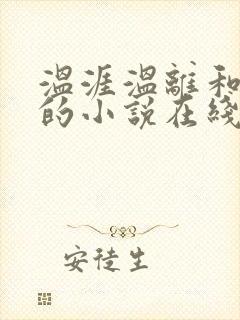 温涯温離和
的小説在綫
安徒生